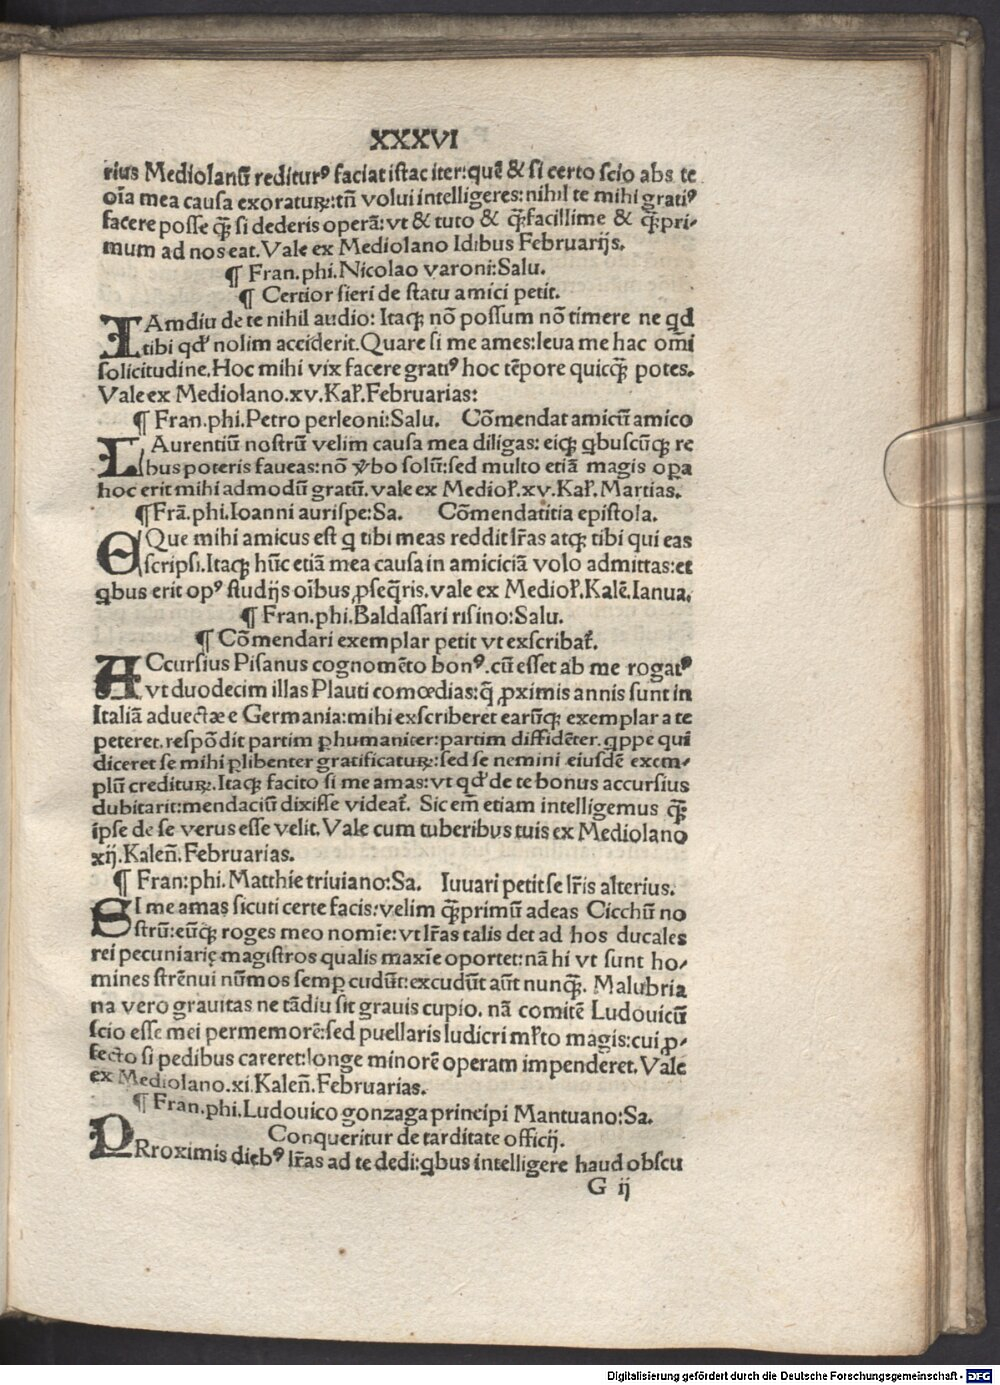 XXXVI
rius Mediolanū rediturꝰ faciat istac iter: quē & si certo scio abs te
oīa mea causa exoraturꝫ: tn̄ volui intelligeres: nihil te mihi gratiꝰ
facere posse q̄ꝫ si dederis operā: vt & tuto & q̄ꝫfacillime & q̄ꝫpri-
mum ad nos eat. Vale ex Mediolano Idibus Februarijs.
¶ Fran. phi. Nicolao varoni: Salu.
¶ Certior fieri de statu amici petit.
TAmdiu de te nihil audio: Itaqꝫ nō possum nō timere ne qd
tibi qd' nolim acciderit. Quare si me ames: leua me hac om̄i
solicitudine. Hoc mihi vix facere gratiꝰ hoc tēpore quicq̄ꝫ potes.
Vale ex Mediolano. xv. Kal'. Februarias:
¶ Fran. phi. Petro perleoni: Salu. Cōmendat amicū amico
LAurentiū nostrū velim causa mea diligas: eiqꝫ qbuscūqꝫ re
bus poteris faueas: nō v̄bo solū: sed multo etiā magis oꝑa
hoc erit mihi admodū gratū. vale ex Mediol'. xv. Kal'. Martias.
¶ Frā. phi. Ioanni aurispe: Sa. Cōmendatitia epistola.
EQue mihi amicus est q tibi meas reddit lr̄as atqꝫ tibi qui eas
scripsi. Itaqꝫ hūc etiā mea causa in amiciciā volo admittas: et
qbus erit opꝰ studijs oībus ꝓseq̄ris. vale ex Mediol'. Kalē. Ianua.
¶ Fran. phi. Baldassari risino: Salu.
¶ Cōmendari exemplar petit vt exscribat'.
ACcursius Pisanus cognomēto bonꝰ. cū esset ab me rogatꝰ
vt duodecim illas Plauti comœdias: q̄ ꝓximis annis sunt in
Italiā aduectæ e Germania: mihi exscriberet earūqꝫ exemplar a te
peteret. respōdit partim ꝑhumaniter: partim diffidēter. qppe qui
diceret se mihi ꝑlibenter gratificaturꝫ: sed se nemini eiusdē exem-
plū crediturꝫ. Itaqꝫ facito si me amas: vt qd' de te bonus accursius
dubitarit: mendaciū dixisse videat'. Sic em̄ etiam intelligemus q̄ꝫ
ipse de se verus esse velit. Vale cum tuberibus tuis ex Mediolano
xij. Kalen̄. Februarias.
¶ Fran: phi. Matthie triuiano: Sa. Iuuari petit se lr̄is alterius.
SI me amas sicuti certe facis: velim q̄ꝫprimū adeas Cicchū no
strū: eūqꝫ roges meo nomīe: vt lr̄as talis det ad hos ducales
rei pecuniarię magistros qualis maxīe oportet: nā hi vt sunt ho-
mines strēnui nūmos semꝑ cudūt: excudūt aūt nunq̄ꝫ. Malubria
na vero grauitas ne tādiu sit grauis cupio. nā comitē Ludouicū
scio esse mei permemorē: sed puellaris ludicri ml'to magis: cui ꝓ-
fecto si pedibus careret: longe minorē operam impenderet. Vale
ex Mediolano. xi. Kalen̄. Februarias.
¶ Fran. phi. Ludouico gonzaga principi Mantuano: Sa.
Conqueritur de tarditate officij.
PRroximis diebꝰ lr̄as ad te dedi: qbus intelligere haud obscu
G ij
Digitalisierung gefördert durch die Deutsche Forschungsgemeinschaft - DFG